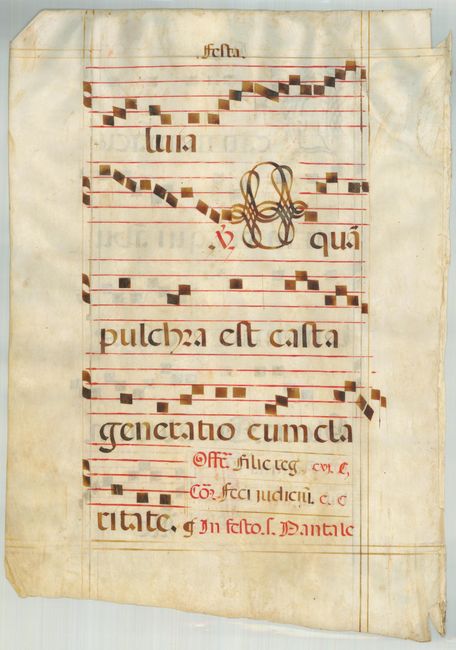 Festa.
luia
.℣. O quã
pulchra est casta
generatio cum cla
Offr̃. Filie reg. cvi. C.
Cõr Feci judiciũ. c. c
ritate. ¶ In festo. s. Pantale